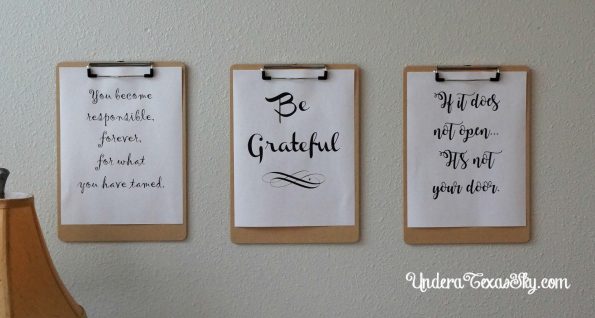 You become
responsible,
forever,
for what
you have tamed.
Be
Grateful
If it does
not open...
It's not
your door.
UnderaTexasSky.com